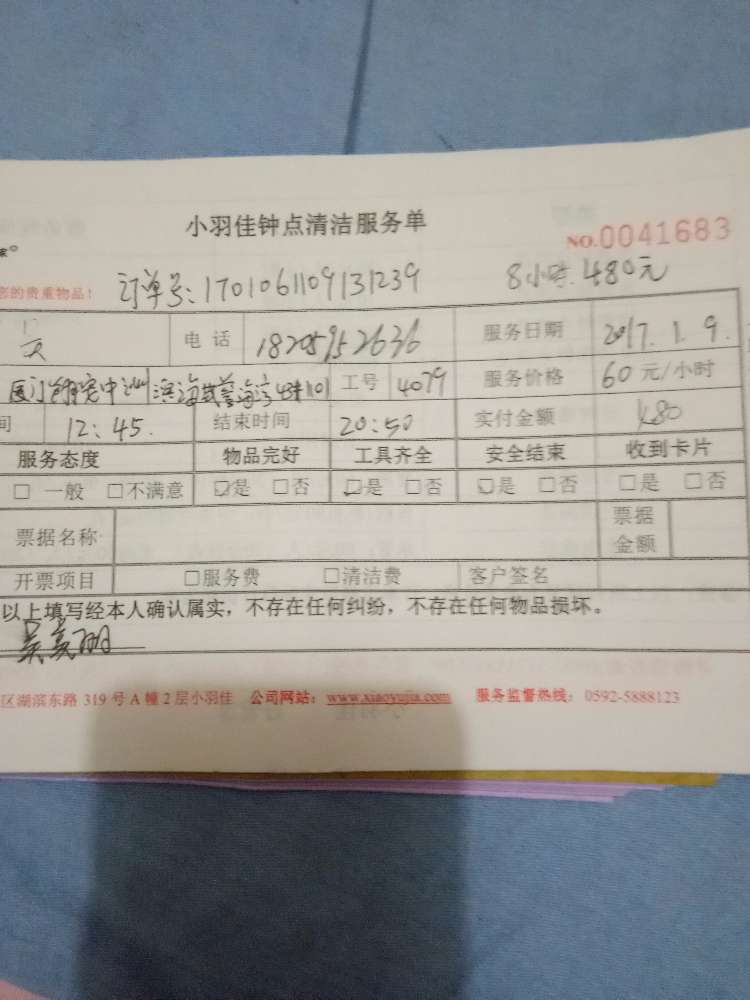 小羽佳钟点清洁服务单
NO.0041683
家
您的贵重物品! 订单号:1701061109131239 8小时.480元
电话 18205952636 服务日期 2017.1.9.
中洲滨海 1101 工号 4079 服务价格 60元/小时
间 12:45. 结束时间 20:50 实付金额 480
服务态度 物品完好 工具齐全 安全结束 收到卡片
□ 一般 □不满意 ☑是 □否 ☑是 □否 ☑是 □否 □是 □否
票据名称 票据金额
开票项目 □服务费 □清洁费 客户签名
以上填写经本人确认属实,不存在任何纠纷,不存在任何物品损坏。
区湖滨东路 319 号 A 幢 2 层小羽佳 公司网站:www.xiaoyujia.com 服务监督热线:0592-5888123